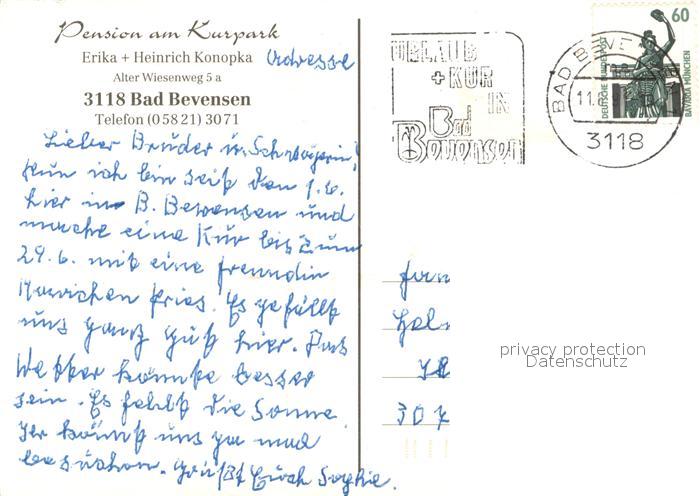 Pension am Kurpark
Erika + Heinrich Konopka Adresse
Alter Wiesenweg 5 a
3118 Bad Bevensen
Telefon (0 58 21) 30 71
Lieber Bruder u. Schwägerin!
Nun ich bin seit den 1.6.
hier in B. Bewensen und
mache eine Kur bis zum
29.6. mit eine freundin
Mariechen Fries. Es gefällt
uns ganz gut hier. Das
Wetter könnte besser
sein. Es fehlt die Sonne.
Ihr könnt uns ja mal
besuchen. Grüßt Euch Sophie.
URLAUB
+ KUR
IN
Bad
Bevensen
BAD BEVE
11.6
3118
60
DEUTSCHE BUNDESPOST
BAVARIA MÜNCHEN
Fam
Hel
307
privacy protection
Datenschutz